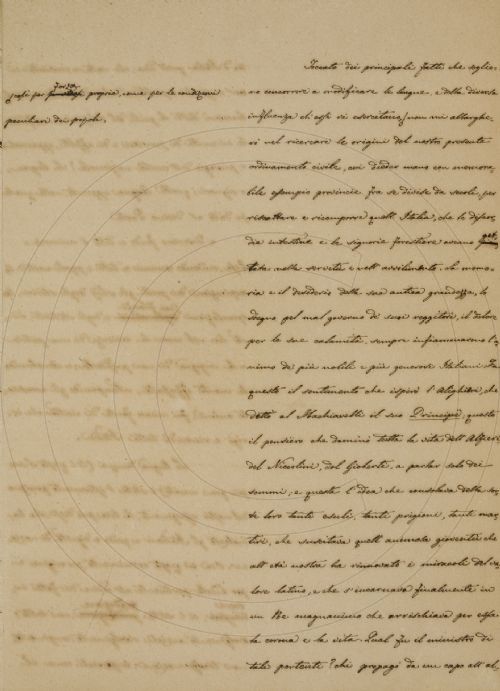 forza
quasi per propria, come per le condizioni
peculiari dei popoli.
Toccato dei principali fatti che soglio-
no concorrere a modificare le lingue, e della diversa
influenza ch'essi vi esercitano, non mi allarghe-
rò nel ricercare le origini del nostro presente
ordinamento civile, cui dieder mano con memora-
bile esempio provincie fra se divise da secoli, per
riscattare e ricomporre quell'Italia, che le discor-
die intestine e le signorie forestiere aveano get-
tata nella servitù e nell'avvilimento. La memo-
ria e il desiderio della sua antica grandezza, lo
sdegno pel mal governo de' suoi reggitori, il dolore
per le sue calamità, sempre infiammarono l'a-
nimo de' più nobili e più generosi Italiani. Fu
questo il sentimento che ispirò l'Alighieri, che
dettò al Machiavelli il suo Principe; questo
il pensiero che dominò tutta la vita dell'Alfieri
del Niccolini, del Gioberti, a parlar solo dei
sommi; e questa l'idea che consolava della sor-
te loro tanti esuli, tanti prigioni, tanti mar-
tiri, che suscitava quell'animosa gioventù che
all'età nostra ha rinnovato i miracoli del va-
lore latino, e che s'incarnava finalmente in
un Re magnanimo che arrischiava per essa
la corona e la vita. Qual fu il ministro di
tale portento? chi propagò da un capo all'al-